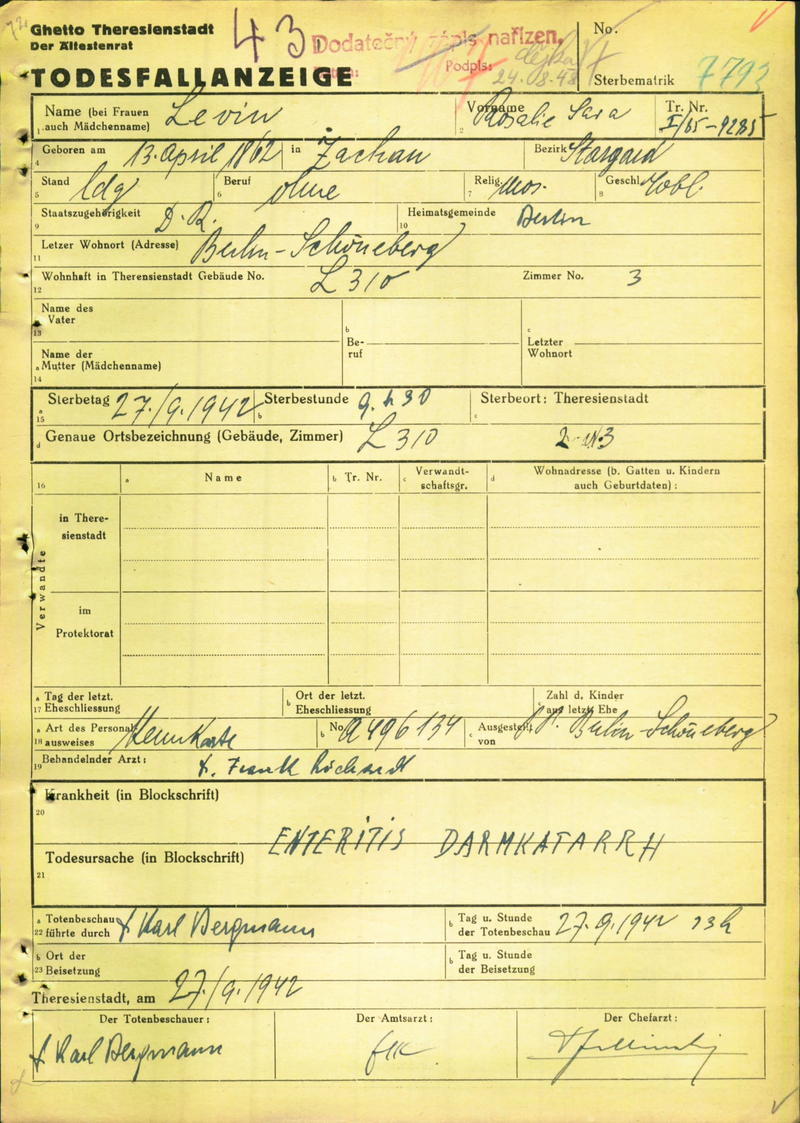 Ghetto Theresienstadt
Der Ältestenrat
43
Dodatečný zápis nařízen.
Podpis:
24. 08. 48
No.
TODESFALLANZEIGE
Sterbematrik 7792
Name (bei Frauen auch Mädchenname) Levin Vorname Rosalie Sara Tr. Nr. I/65-9285
1. 2
Geboren am 13. April 1862 in Zachan Bezirk Stargard
4
Stand ldg Beruf ohne Relig. mos. Geschl. Weibl.
5 6 7 8
Staatszugehörigkeit D. R. Heimatsgemeinde Berlin
9 10
Letzer Wohnort (Adresse) Berlin-Schöneberg
11
Wohnhaft in Therensienstadt Gebäude No. L 310 Zimmer No. 3
12
Name des Vater
13
b Be-ruf
c Letzter Wohnort
Name der
a Mutter (Mädchenname)
14
a Sterbetag 27./9. 1942 b Sterbestunde 9. h 30 c Sterbeort: Theresienstadt
15
d Genaue Ortsbezeichnung (Gebäude, Zimmer) L 310
16 a Name b Tr. Nr. c Verwandt-schaftsgr. d Wohnadresse (b. Gatten u. Kindern auch Geburtdaten):
Verwandte
in There-sienstadt
im Protektorat
a Tag der letzt. Eheschliessung b Ort der letzt. Eheschliessung c Zahl d. Kinder aus letzt. Ehe
17
a Art des Personal-ausweises Kennkarte b No. A 496134 c Ausgestellt von Berlin-Schöneberg
18
Behandelnder Arzt: Dr. Frank Richard
19
Krankheit (in Blockschrift)
20
ENTERITIS DARMKATARRH
Todesursache (in Blockschrift)
21
a Totenbeschau führte durch Dr Karl Bergmann b Tag u. Stunde der Totenbeschau 27. 9. 1942 13h
22
b Ort der Beisetzung b Tag u. Stunde der Beisetzung
23
Theresienstadt, am 27./9. 1942
Der Totenbeschauer: Der Amtsarzt: Der Chefarzt:
Dr Karl Bergmann